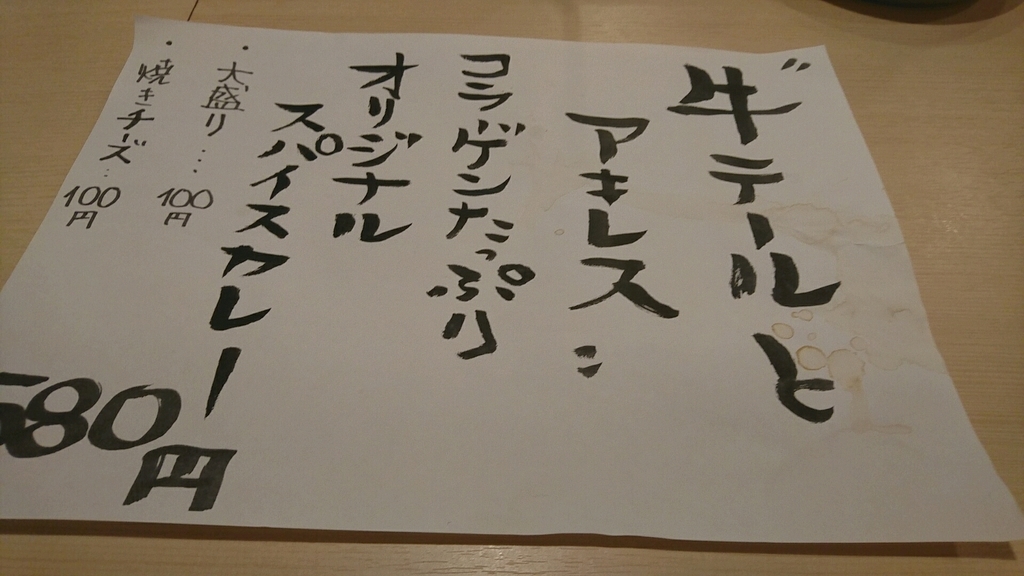 "牛テールと
アキレス"
コラゲンたっぷり
オリジナル
スパイスカレー
・大盛り… 100円
・焼きチーズ… 100円
580円